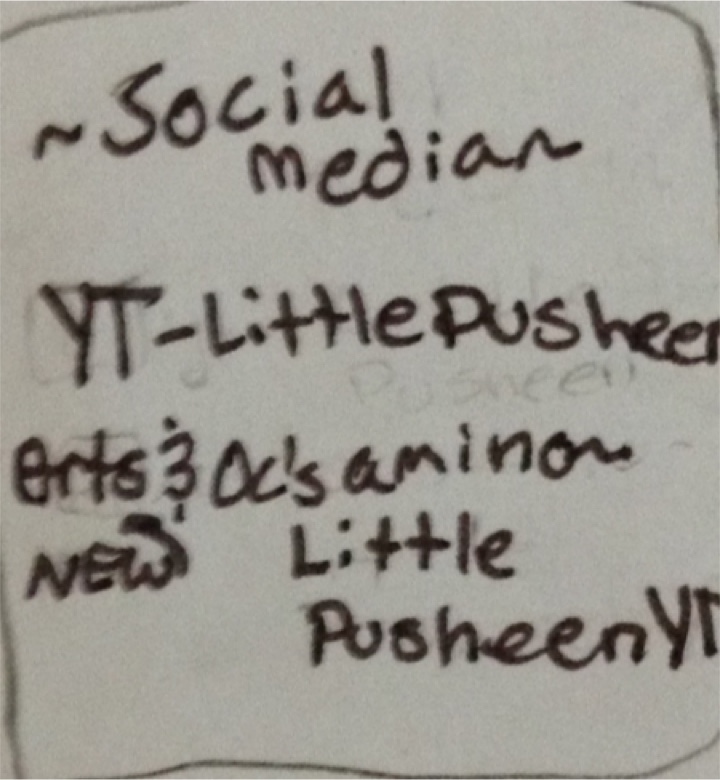 ~Social
media~
YT-LittlePusheen
Pusheen
Arts & Oc's amino~
NEW Little
PusheenYT